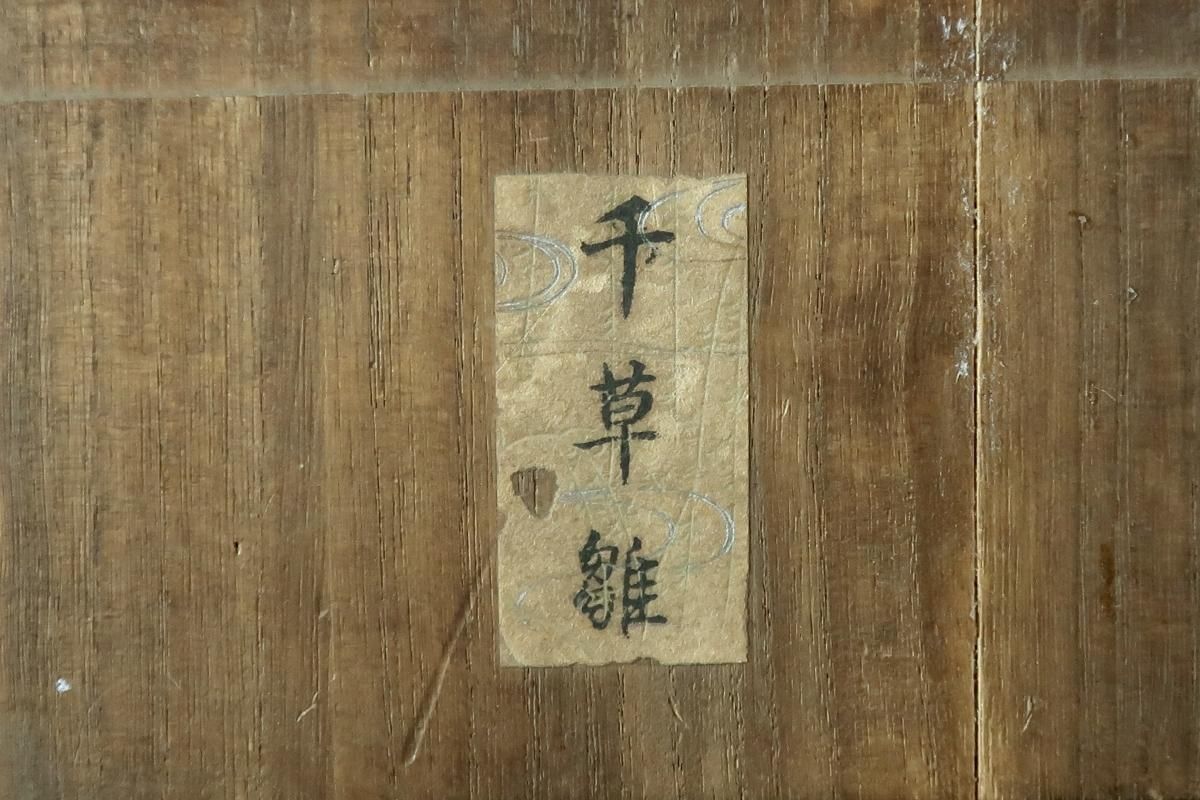 千草雛